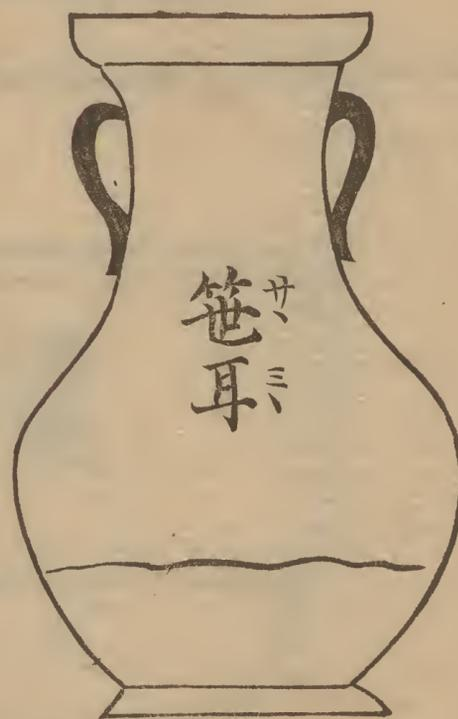 笹耳
サヽミヽ